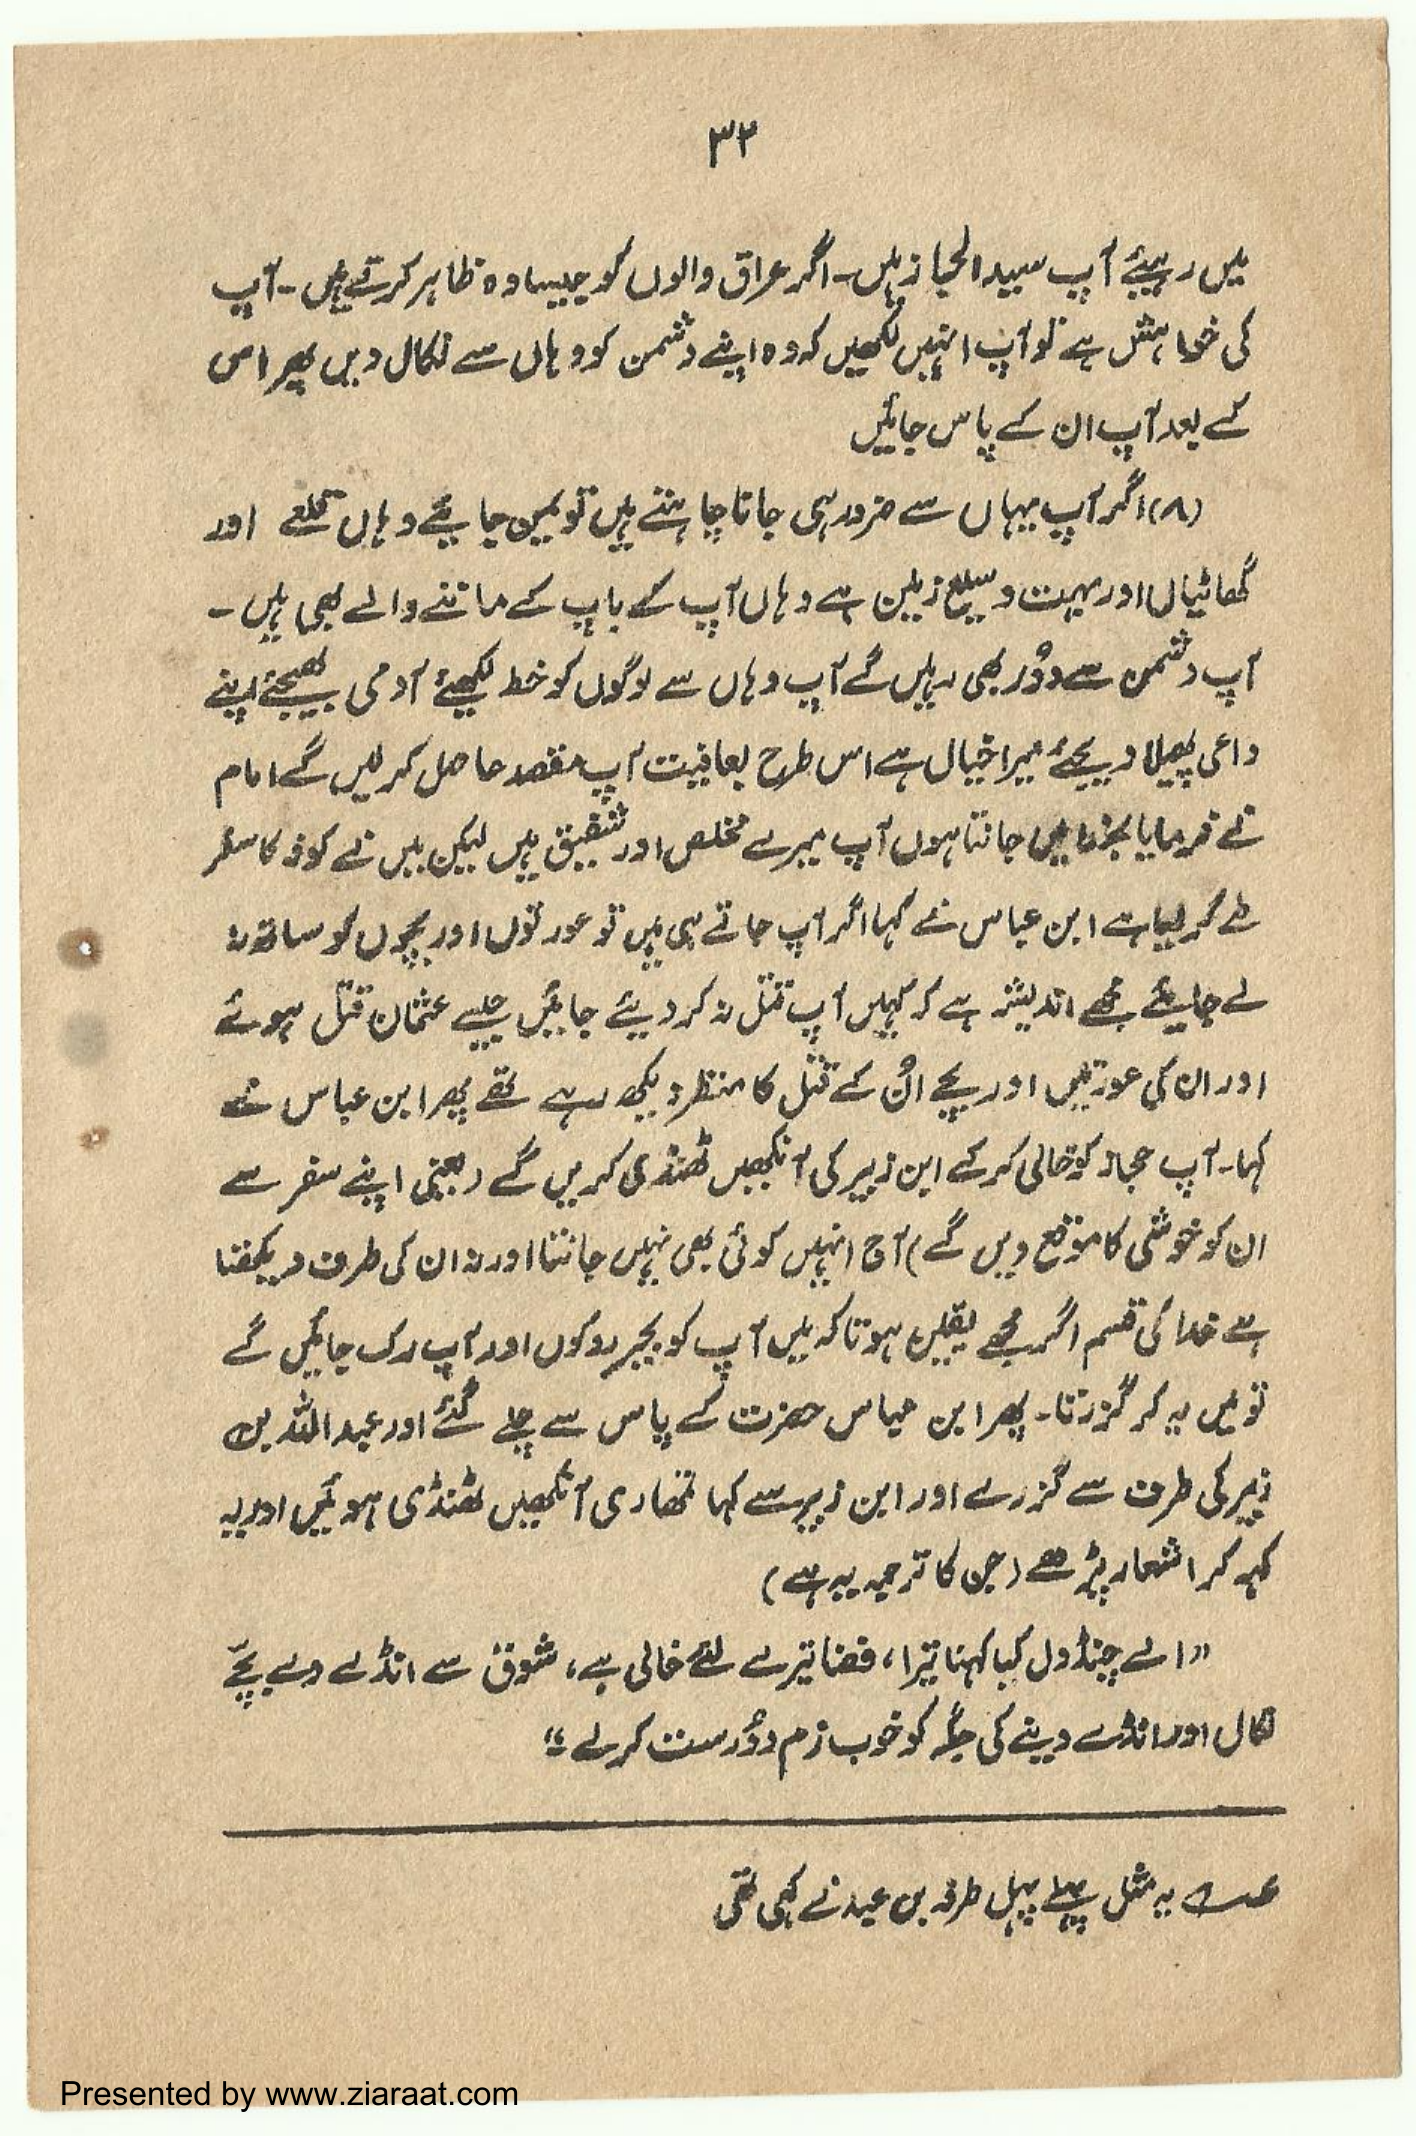 ۳۲
میں رہیئے آپ سید الحجاز ہیں۔ اگر عراق والوں کو جیسا وہ ظاہر کرتے ہیں۔ آپ
کی خواہش ہے تو آپ انہیں لکھیں کہ وہ اپنے دشمن کو وہاں سے نکال دیں پھر اس
کے بعد آپ ان کے پاس جائیں
(۸) اگر آپ یہاں سے ضرور ہی جانا چاہتے ہیں تو یمن جایئے وہاں قلعے اور
گھاٹیاں اور بہت وسیع زمین ہے وہاں آپ کے باپ کے ماننے والے بھی ہیں۔
آپ دشمن سے دُور بھی رہیں گے آپ وہاں سے لوگوں کو خط لکھیئے آدمی بھیجئے اپنے
داعی پھیلا دیجئے میرا خیال ہے اس طرح بعافیت آپ مقصد حاصل کر لیں گے امام
نے فرمایا بخدا میں جانتا ہوں آپ میرے مخلص اور شفیق ہیں لیکن میں نے کوفہ کا سفر
طے کر لیا ہے ابن عباس نے کہا اگر آپ جاتے ہی ہیں تو عورتوں اور بچوں کو ساتھ نہ
لے جایئے مجھے اندیشہ ہے کہ کہیں آپ قتل نہ کر دیئے جائیں جیسے عثمان قتل ہوئے
اور ان کی عورتیں اور بچے اُن کے قتل کا منظر دیکھ رہے تھے پھر ابن عباس نے
کہا۔ آپ حجاز کو خالی کر کے ابن زبیر کی آنکھیں ٹھنڈی کریں گے (یعنی اپنے سفر سے
ان کو خوشی کا موقع دیں گے) آج انہیں کوئی بھی نہیں جانتا اور نہ ان کی طرف دیکھتا
ہے خدا کی قسم اگر مجھے یقین ہوتا کہ میں آپ کو بجبر روکوں اور آپ رک جائیں گے
تو میں یہ کر گزرتا۔ پھر ابن عباس حضرت کے پاس سے چلے گئے اور عبد اللہ بن
زبیر کی طرف سے گزرے اور ابن زبیر سے کہا تمھاری آنکھیں ٹھنڈی ہوئیں اور یہ
کہہ کر اشعار پڑھے (جن کا ترجمہ یہ ہے)
”اے چنڈول کیا کہنا تیرا، فضا تیرے لئے خالی ہے، شوق سے انڈے دے بچّے
نکال اور انڈے دینے کی جگہ کو خوب نرم و دُرست کر لے“؎
عـہ یہ مثل پہلے پہل طرفہ بن عبد نے کہی تھی
Presented by www.ziaraat.com